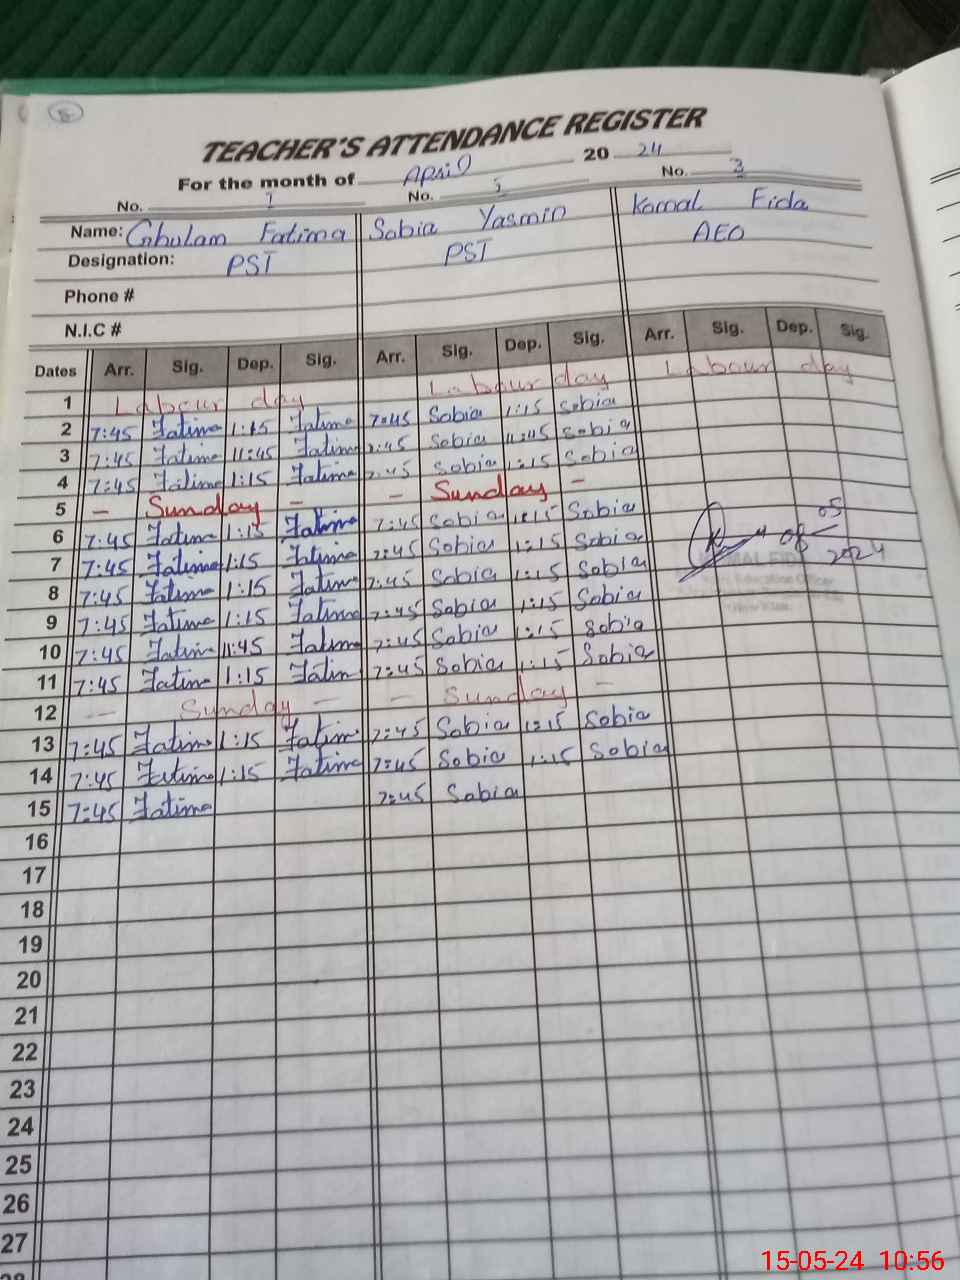 8
TEACHER'S ATTENDANCE REGISTER
For the month of April 20 24
No. 1 No. 2 No. 3
Name: Ghulam Fatima Sobia Yasmin Komal Fida
Designation: PST PST AEO
Phone #
N.I.C #
Dates Arr. Sig. Dep. Sig. Arr. Sig. Dep. Sig. Arr. Sig. Dep. Sig.
1 Labour day Labour day Labour day
2 7:45 Fatima 1:15 Fatima 7:45 Sobia 1:15 Sobia
3 7:45 Fatima 11:45 Fatima 7:45 Sobia 11:45 Sobia
4 7:45 Fatima 1:15 Fatima 7:45 Sobia 1:15 Sobia
5 - Sunday - - Sunday -
6 7:45 Fatima 1:15 Fatima 7:45 Sobia 1:15 Sobia
7 7:45 Fatima 1:15 Fatima 7:45 Sobia 1:15 Sobia 05
8 7:45 Fatima 1:15 Fatima 7:45 Sobia 1:15 Sobia 08 2024
KOMAL FIDA
Education Officer
9 7:45 Fatima 1:15 Fatima 7:45 Sobia 1:15 Sobia
10 7:45 Fatima 11:45 Fatima 7:45 Sobia 1:15 Sobia
11 7:45 Fatima 1:15 Fatima 7:45 Sobia 1:15 Sobia
12 - Sunday - - Sunday -
13 7:45 Fatima 1:15 Fatima 7:45 Sobia 1:15 Sobia
14 7:45 Fatima 1:15 Fatima 7:45 Sobia 1:15 Sobia
15 7:45 Fatima 7:45 Sobia
16
17
18
19
20
21
22
23
24
25
26
27
28
15-05-24 10:56